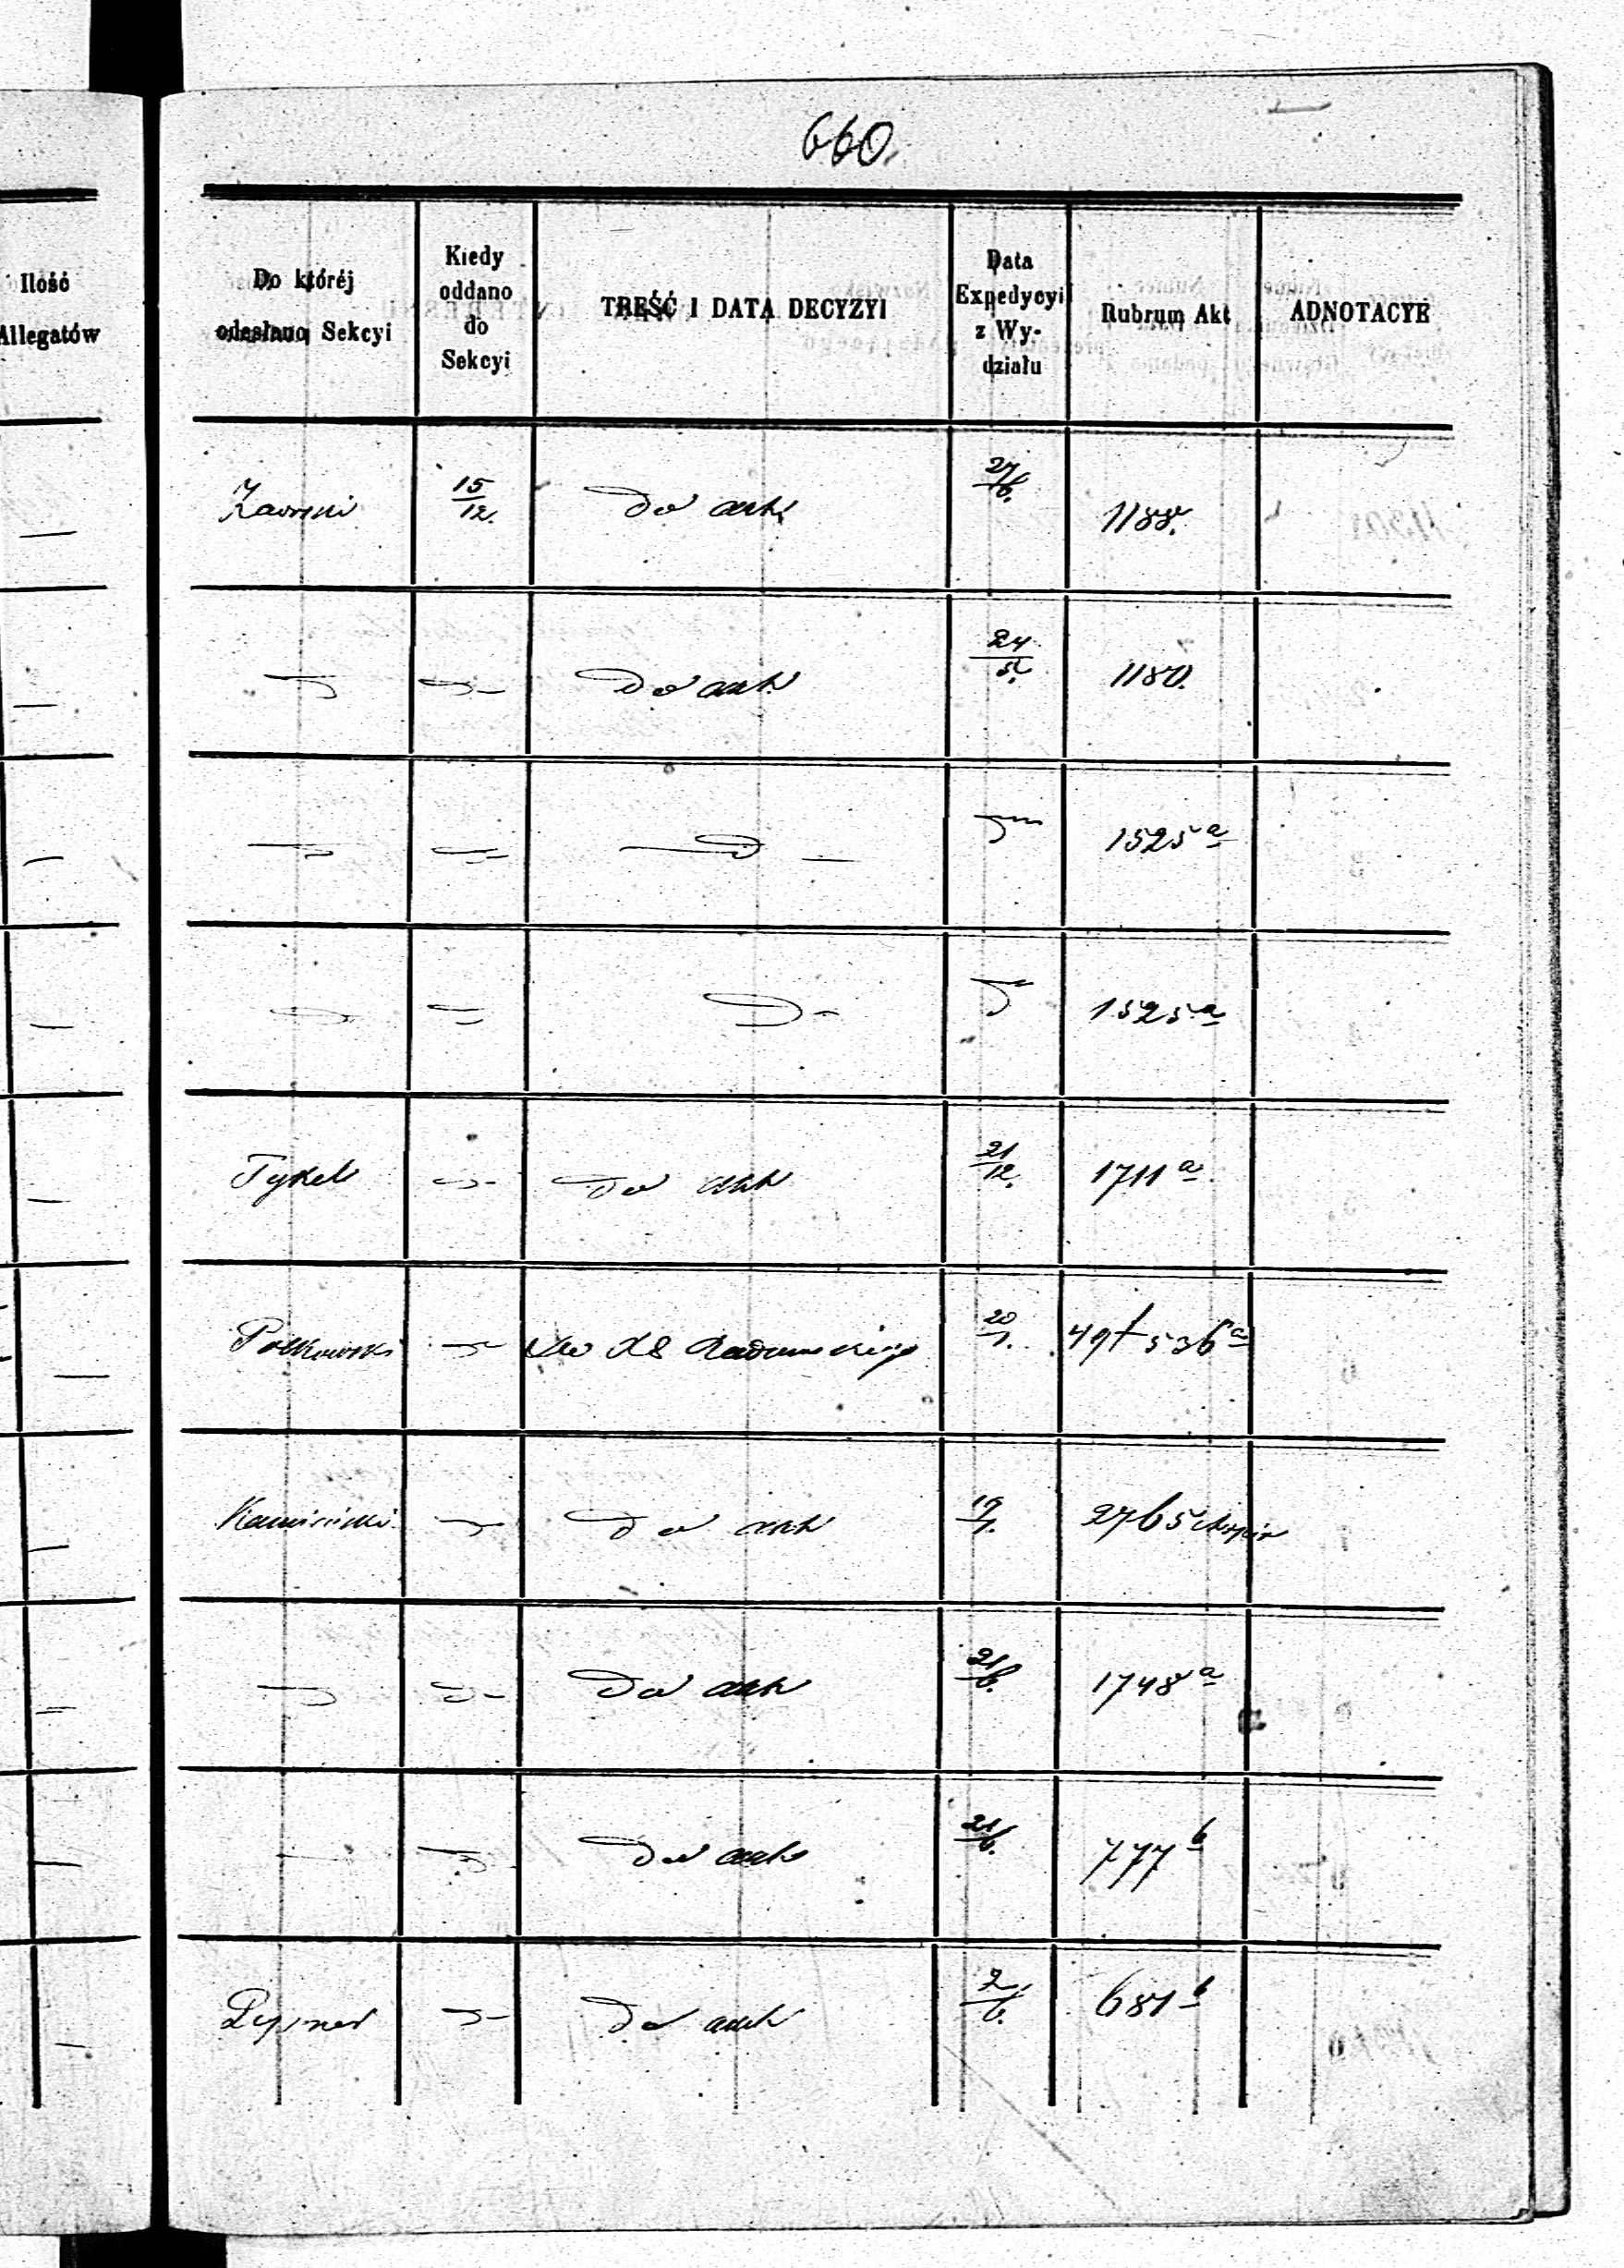 660.
Ilość
Allegatów
Do któréj
odesłano Sekcyi
Kiedy
oddano
do
Sekcyi
TREŚĆ I DATA DECYZYI
Data
Expedycyi
z Wy-
działu
Rubrum Akt
ADNOTACYE
15/12. do akt 27/6. 1188.
do akt 24 1180.
1525 a
1525 a
do akt 21/12. 1711 a
20/1. 536 a
do akt 19/1. 2765
do akt 21/6. 1748 a
do akt 21/6. 777 b
do akt 2/6. 681 b